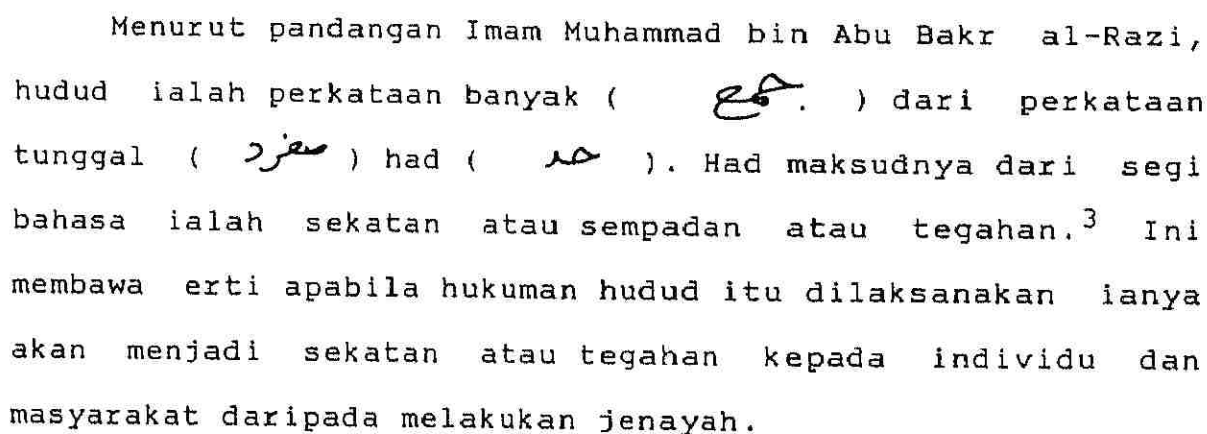 Menurut pandangan Imam Muhammad bin Abu Bakr al-Razi,
hudud ialah perkataan banyak ( جمع ) dari perkataan
tunggal ( مفرد ) had ( حد ). Had maksudnya dari segi
bahasa ialah sekatan atau sempadan atau tegahan.³ Ini
membawa erti apabila hukuman hudud itu dilaksanakan ianya
akan menjadi sekatan atau tegahan kepada individu dan
masyarakat daripada melakukan jenayah.